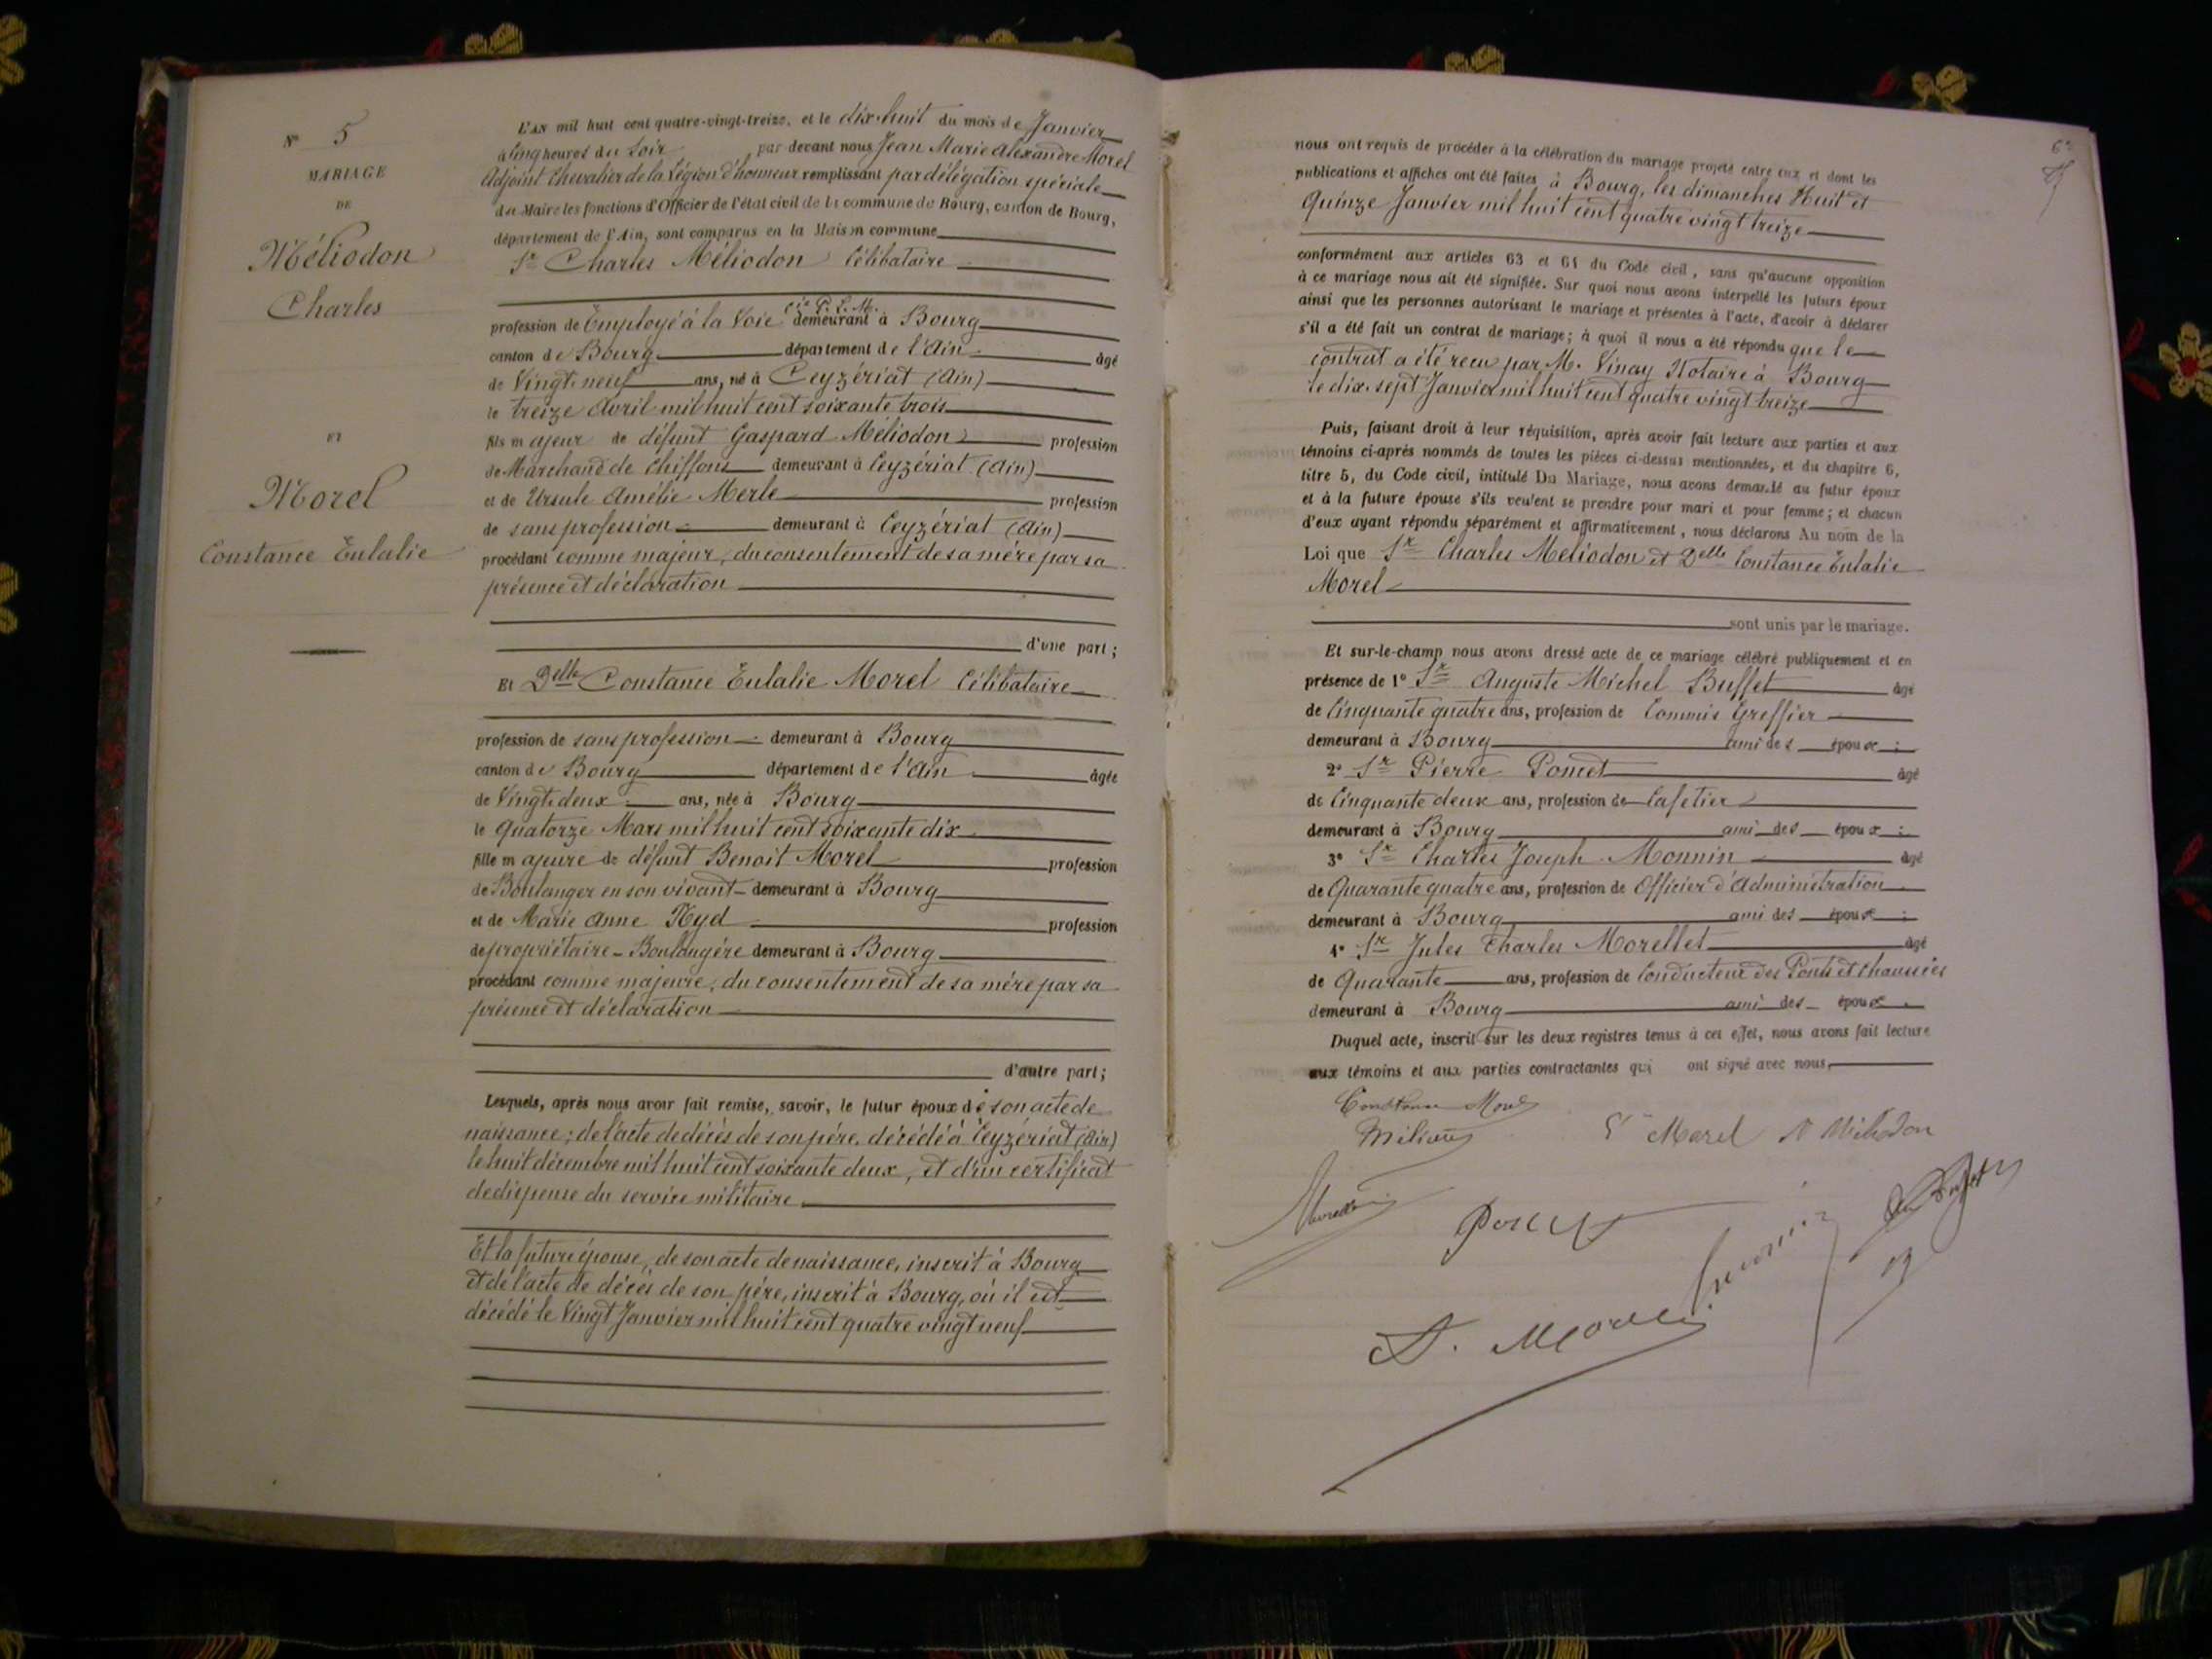 N° 5
MARIAGE
DE
Méliodon
Charles
ET
Morel
Constance Eulalie
L'AN mil huit cent quatre-vingt-treize, et le dix-huit du mois de Janvier
à Cinq heures du Soir par-devant nous Jean Marie Alexandre Morel
Adjoint Chevalier de la Légion d'honneur remplissant par délégation spéciale
du Maire les fonctions d'Officier de l'état civil de la commune de Bourg, canton de Bourg,
département de l'Ain, sont comparus en la Maison commune
Sr Charles Méliodon Célibataire
cie P. L. M.
profession de Employé à la Voie demeurant à Bourg
canton de Bourg département de l'Ain âgé
de Vingt-neuf ans, né à Ceyzériat (Ain)
le treize Avril mil huit cent soixante trois
fils majeur de défunt Gaspard Méliodon profession
de Marchand de Chiffons demeurant à Ceyzériat (Ain)
et de Ursule Amélie Merle profession
de sans profession demeurant à Ceyzériat (Ain)
procédant comme majeur, du consentement de sa mère par sa
présence et déclaration
d'une part;
Et Delle Constance Eulalie Morel Célibataire
profession de sans profession demeurant à Bourg
canton de Bourg département de l'Ain âgée
de Vingt-deux ans, née à Bourg
le Quatorze Mars mil huit cent soixante dix
fille majeure de défunt Benoit Morel profession
de Boulanger en son vivant demeurant à Bourg
et de Marie Anne Nyd profession
de propriétaire - Boulangère demeurant à Bourg
procédant comme majeure, du consentement de sa mère par sa
présence et déclaration
d'autre part;
Lesquels, après nous avoir fait remise, savoir, le futur époux de son acte de
naissance; de l'acte de décès de son père, décédé à Ceyzériat (Ain)
le huit décembre mil huit cent soixante deux, et d'un certificat
de dispense du service militaire
Et la future épouse, de son acte de naissance, inscrit à Bourg
et de l'acte de décès de son père, inscrit à Bourg, où il est
décédé le Vingt Janvier mil huit cent quatre vingt neuf
nous ont requis de procéder à la célébration du mariage projeté entre eux et dont les
publications et affiches ont été faites à Bourg, les dimanches Huit et
Quinze Janvier mil huit cent quatre vingt treize
conformément aux articles 63 et 64 du Code civil, sans qu'aucune opposition
à ce mariage nous ait été signifiée. Sur quoi nous avons interpellé les futurs époux
ainsi que les personnes autorisant le mariage et présentes à l'acte, d'avoir à déclarer
s'il a été fait un contrat de mariage; à quoi il nous a été répondu que le
contrat a été recu par M. Vinay Notaire à Bourg
le dix-sept Janvier mil huit cent quatre vingt treize
Puis, faisant droit à leur réquisition, après avoir fait lecture aux parties et aux
témoins ci-après nommés de toutes les pièces ci-dessus mentionnées, et du chapitre 6,
titre 5, du Code civil, intitulé Du Mariage, nous avons demandé au futur époux
et à la future épouse s'ils veulent se prendre pour mari et pour femme; et chacun
d'eux ayant répondu séparément et affirmativement, nous déclarons Au nom de la
Loi que Sr Charles Méliodon et Delle Constance Eulalie
Morel
sont unis par le mariage.
Et sur-le-champ nous avons dressé acte de ce mariage célébré publiquement et en
présence de 1° Sr Auguste Michel Buffet âgé
de Cinquante quatre ans, profession de Commis Greffier
demeurant à Bourg ami des époux;
2° Sr Pierre Poncet âgé
de Cinquante deux ans, profession de Cafetier
demeurant à Bourg ami des époux;
3° Sr Charles Joseph Monnin âgé
de Quarante quatre ans, profession de Officier d'Administration
demeurant à Bourg ami des époux;
4° Sr Jules Charles Morellet âgé
de Quarante ans, profession de Conducteur des Ponts et chaussées
demeurant à Bourg ami des époux.
Duquel acte, inscrit sur les deux registres tenus à cet effet, nous avons fait lecture
aux témoins et aux parties contractantes qui ont signé avec nous
Constance Morel
Morel Méliodon
A. Morel